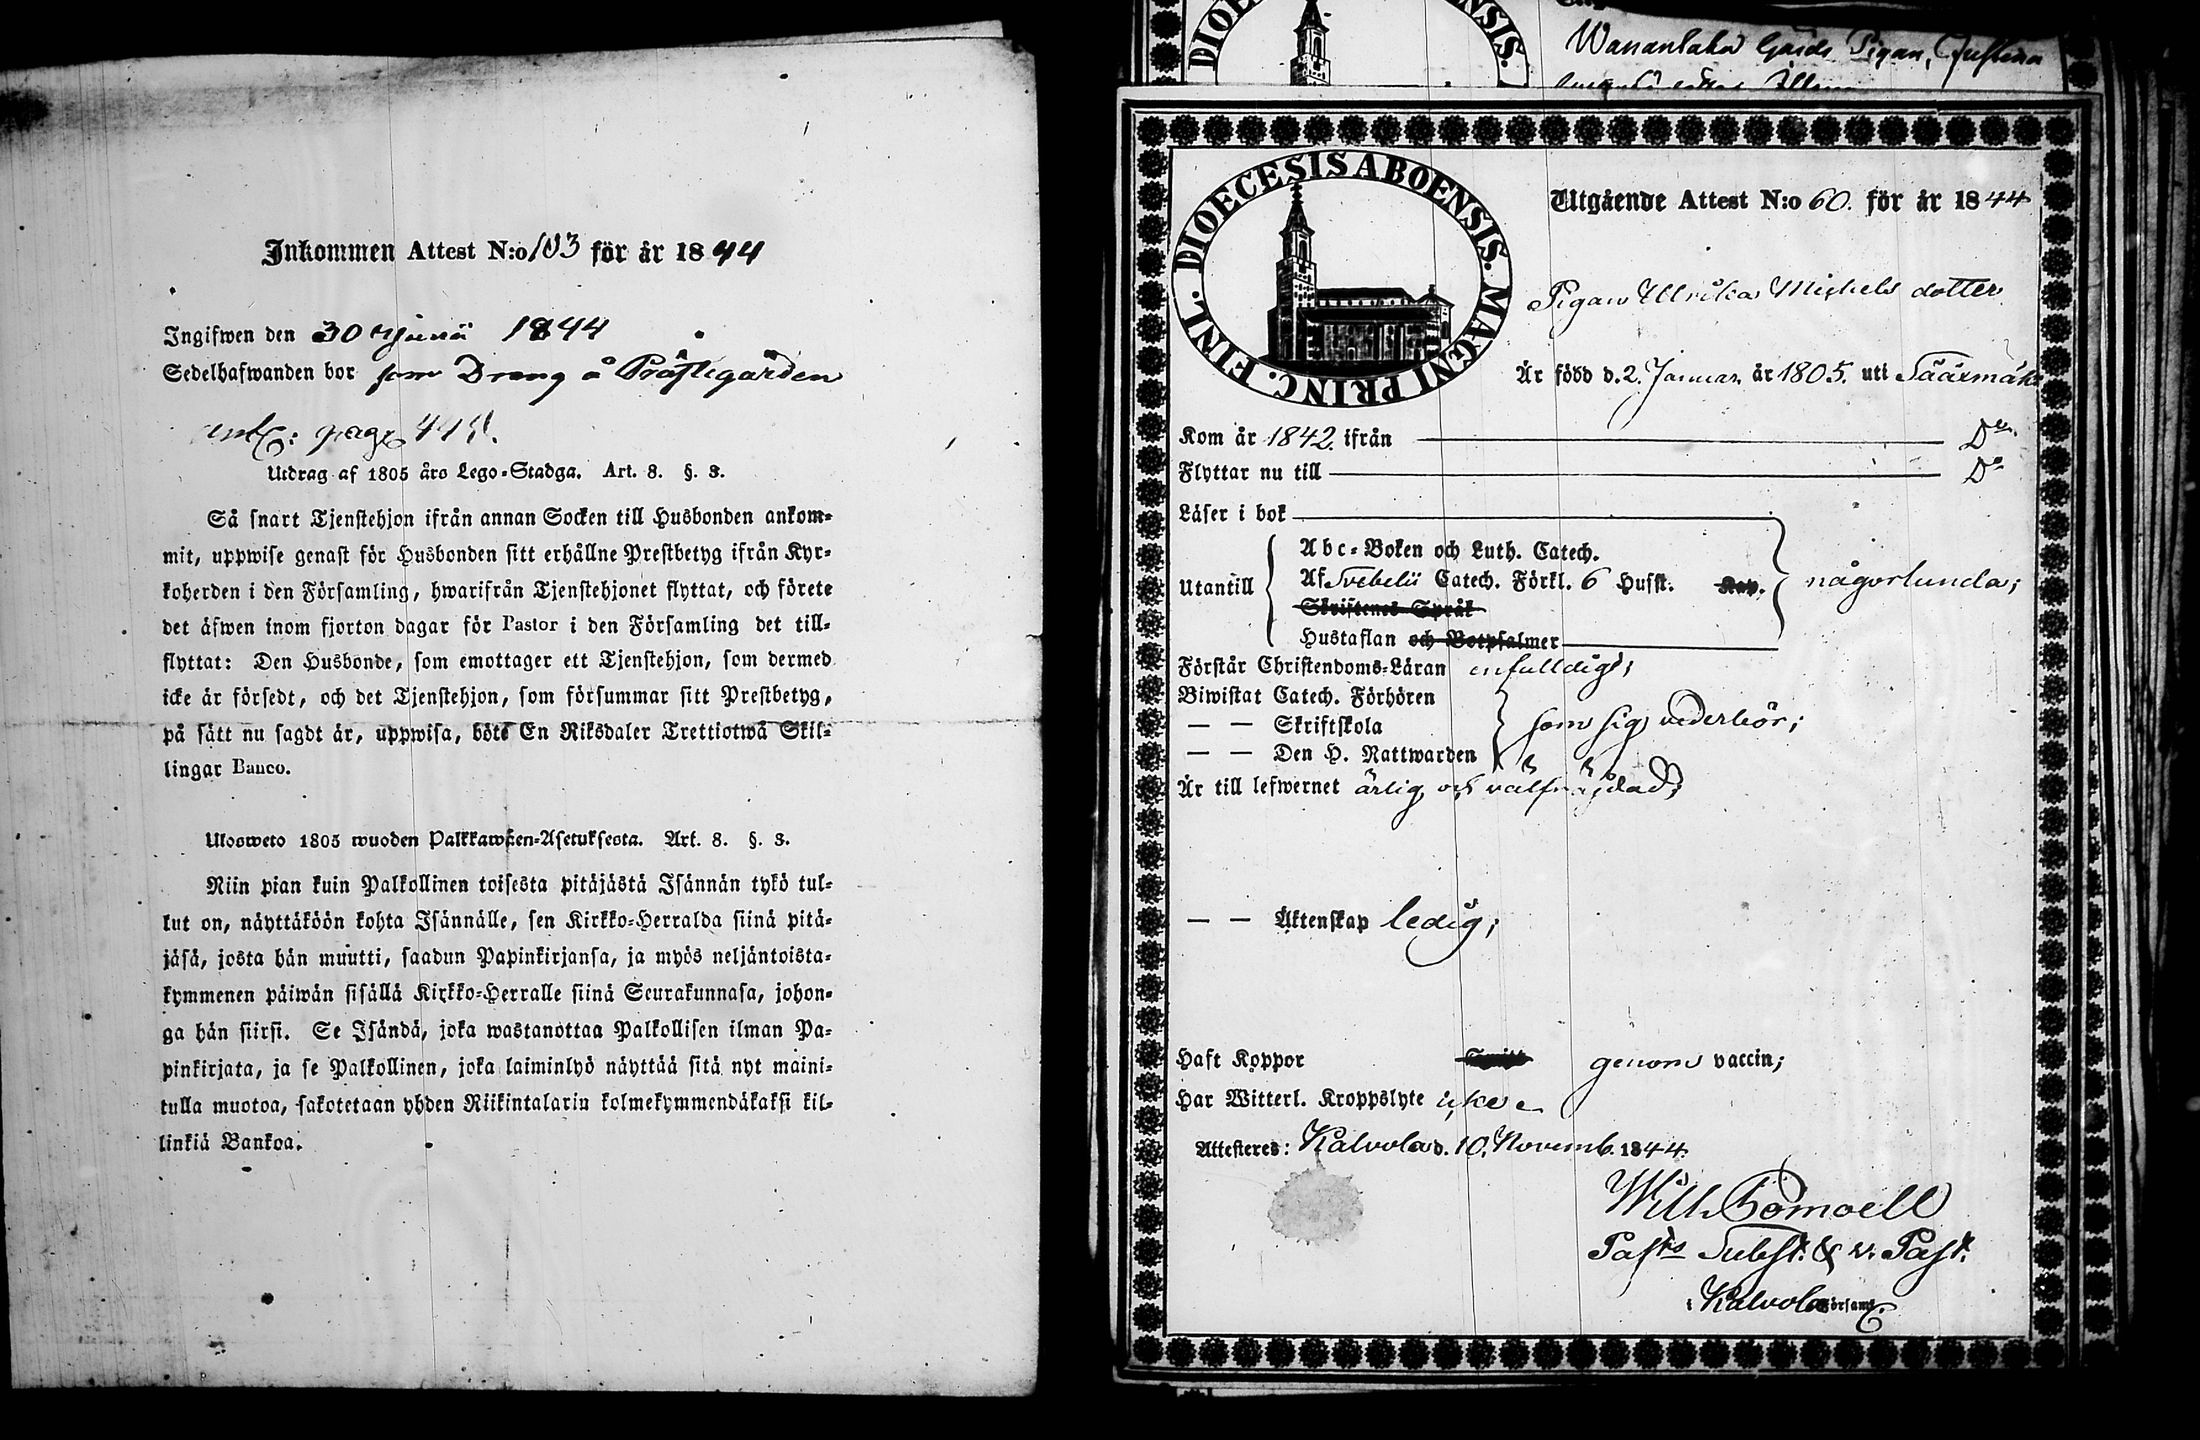 Inkommen Attest N:o 103 för år 1844
Ingifwen den 30 Junii 1844
Sedelhafwanden bor som Dreng å Prästegården
ant: pag
Utdrag af 1805 års Lego-Stadga. Art. 8. §. 3.
Så snart Tjenstehjon ifrån annan Socken till Husbonden ankom-
mit, uppwise genast för Husbonden sitt erhållne Prestbetyg ifrån Kyr-
koherden i den Församling, hwarifrån Tjenstehjonet flyttat, och förete
det äfwen inom fjorton dagar för Pastor i den Församling det till-
flyttat: Den Husbonde, som emottager ett Tjenstehjon, som dermed
icke är försedt, och det Tjenstehjon, som försummar sitt Prestbetyg,
på sätt nu sagdt är, uppwisa, böte En Riksdaler Trettiotwå Skil-
lingar Banco.
Ulosweto 1805 wuoden Palkkawäen-Asetuksesta. Art. 8. §. 3.
Niin pian kuin Palkollinen toisesta pitäjästä Isännän tykö tul-
lut on, näyttäköön kohta Isännälle, sen Kirkko-Herralda siinä pitä-
jäsä, josta hän muutti, saadun Papinkirjansa, ja myös neljäntoista-
kymmenen päiwän sisällä Kirkko-Herralle siinä Seurakunnasa, johon-
ga hän siirsi. Se Isändä, joka wastanottaa Palkollisen ilman Pa-
pinkirjata, ja se Palkollinen, joka laiminlyö näyttää sitä nyt maini-
tulla muotoa, sakotetaan yhden Riikintalarin kolmekymmendäkaksi kil-
linkiä Bankoa.
Wanantaka Gårds Pigan, Justina
DIOECESIS ABOENSIS. MAGNI PRINC. FINL.
Utgående Attest N:o 60. för år 1844
Pigan Ulrika Michels dotter
Är född d. 2. Januar. år 1805. uti Sääxmäki
Kom år 1842. ifrån Do
Flyttar nu till Do
Läser i bok
Utantill
Abc-Boken och Luth. Catech.
Af Svebelii Catech. Förkl. 6 Hufst. Kap.
Skriftenes Språk
Hustaflan och Botpsalmer
någorlunda;
Förstår Christendoms-Läran enfalldigt;
Biwistat Catech. Förhören
— — Skriftskola
— — Den H. Nattwarden
som sig vederbör;
Är till lefwernet ärlig och välfrägdad;
— — Äktenskap ledig;
Haft Koppor genom vaccin;
Har Witterl. Kroppslyte icke.
Attesteras: Kalvola d. 10. Novemb. 1844.
Wilh. Bomoell
Past:s Subst. & v. Past.
i Kalvola Församl.